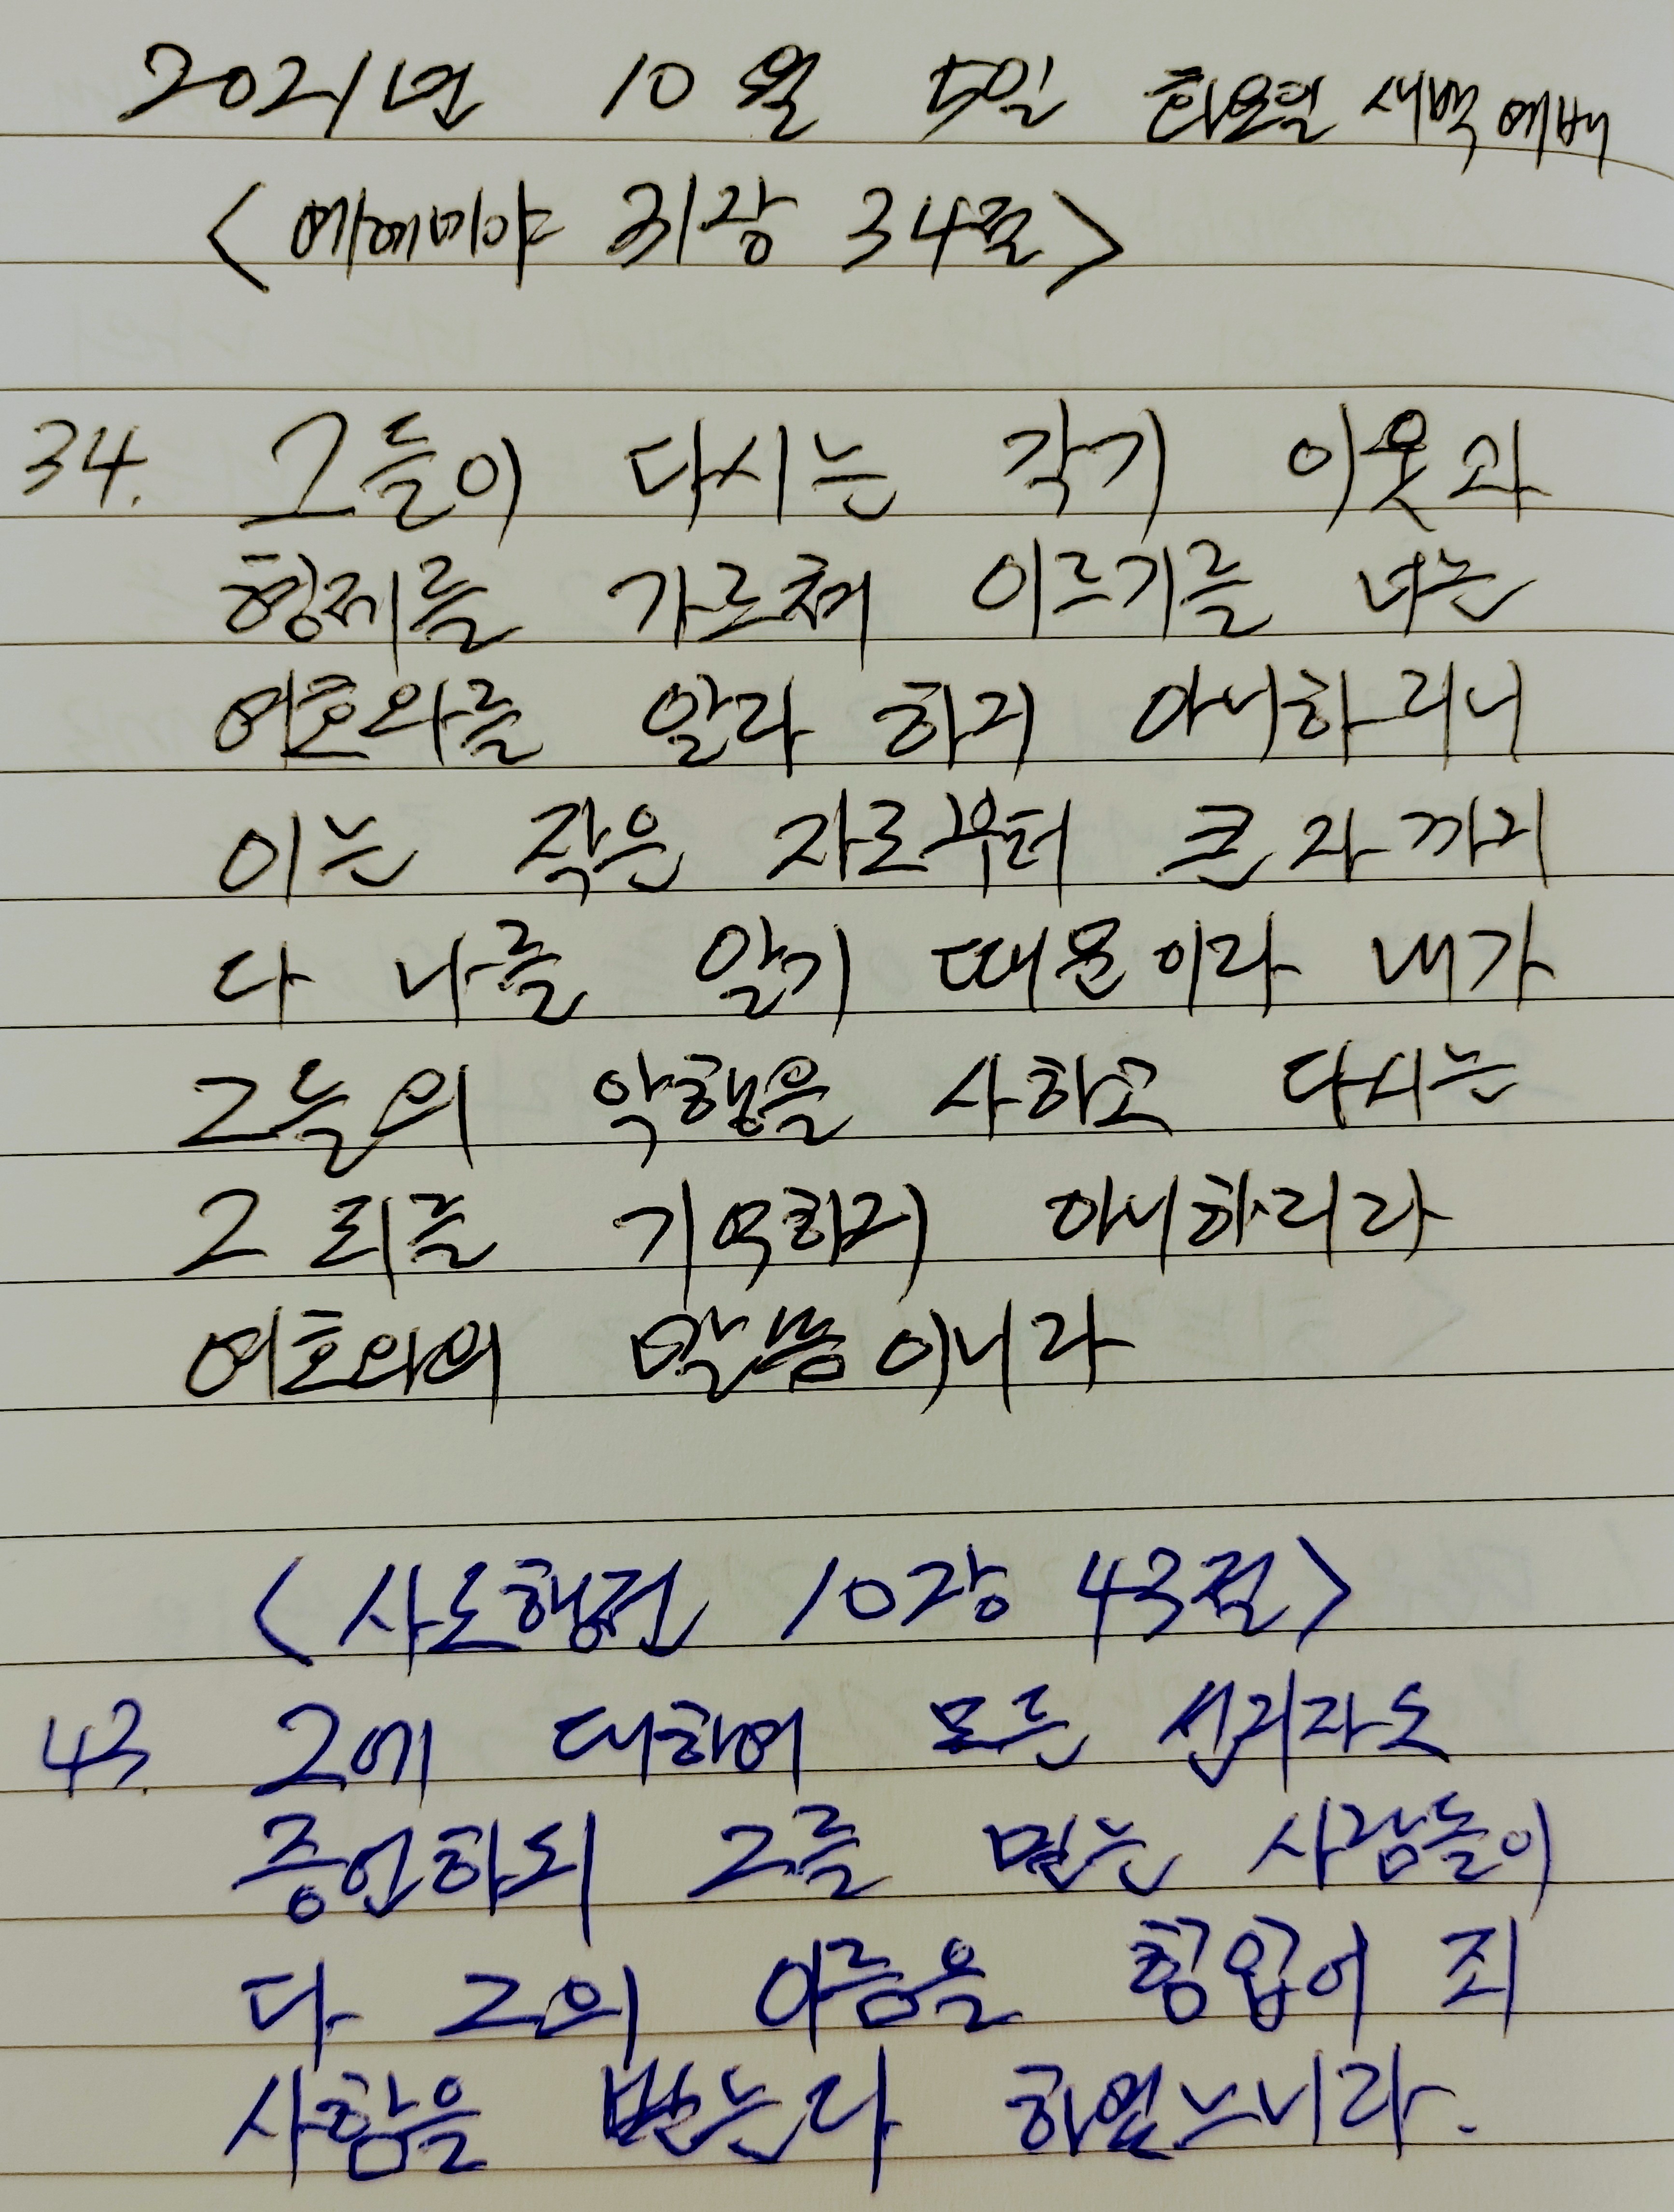 2021년 10월 5일 화요일 새벽예배
<예레미야 31장 34절>
34. 그들이 다시는 각기 이웃과
형제를 가르쳐 이르기를 너는
여호와를 알라 하지 아니하리니
이는 작은 자로부터 큰 자까지
다 나를 알기 때문이라 내가
그들의 악행을 사하고 다시는
그 죄를 기억하지 아니하리라
여호와의 말씀이니라
<사도행전 10장 43절>
43. 그에 대하여 모든 선지자도
증언하되 그를 믿는 사람들이
다 그의 이름을 힘입어 죄
사함을 받는다 하였느니라.